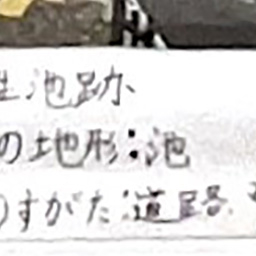 生池跡
の地形:池
のすがた:道路、